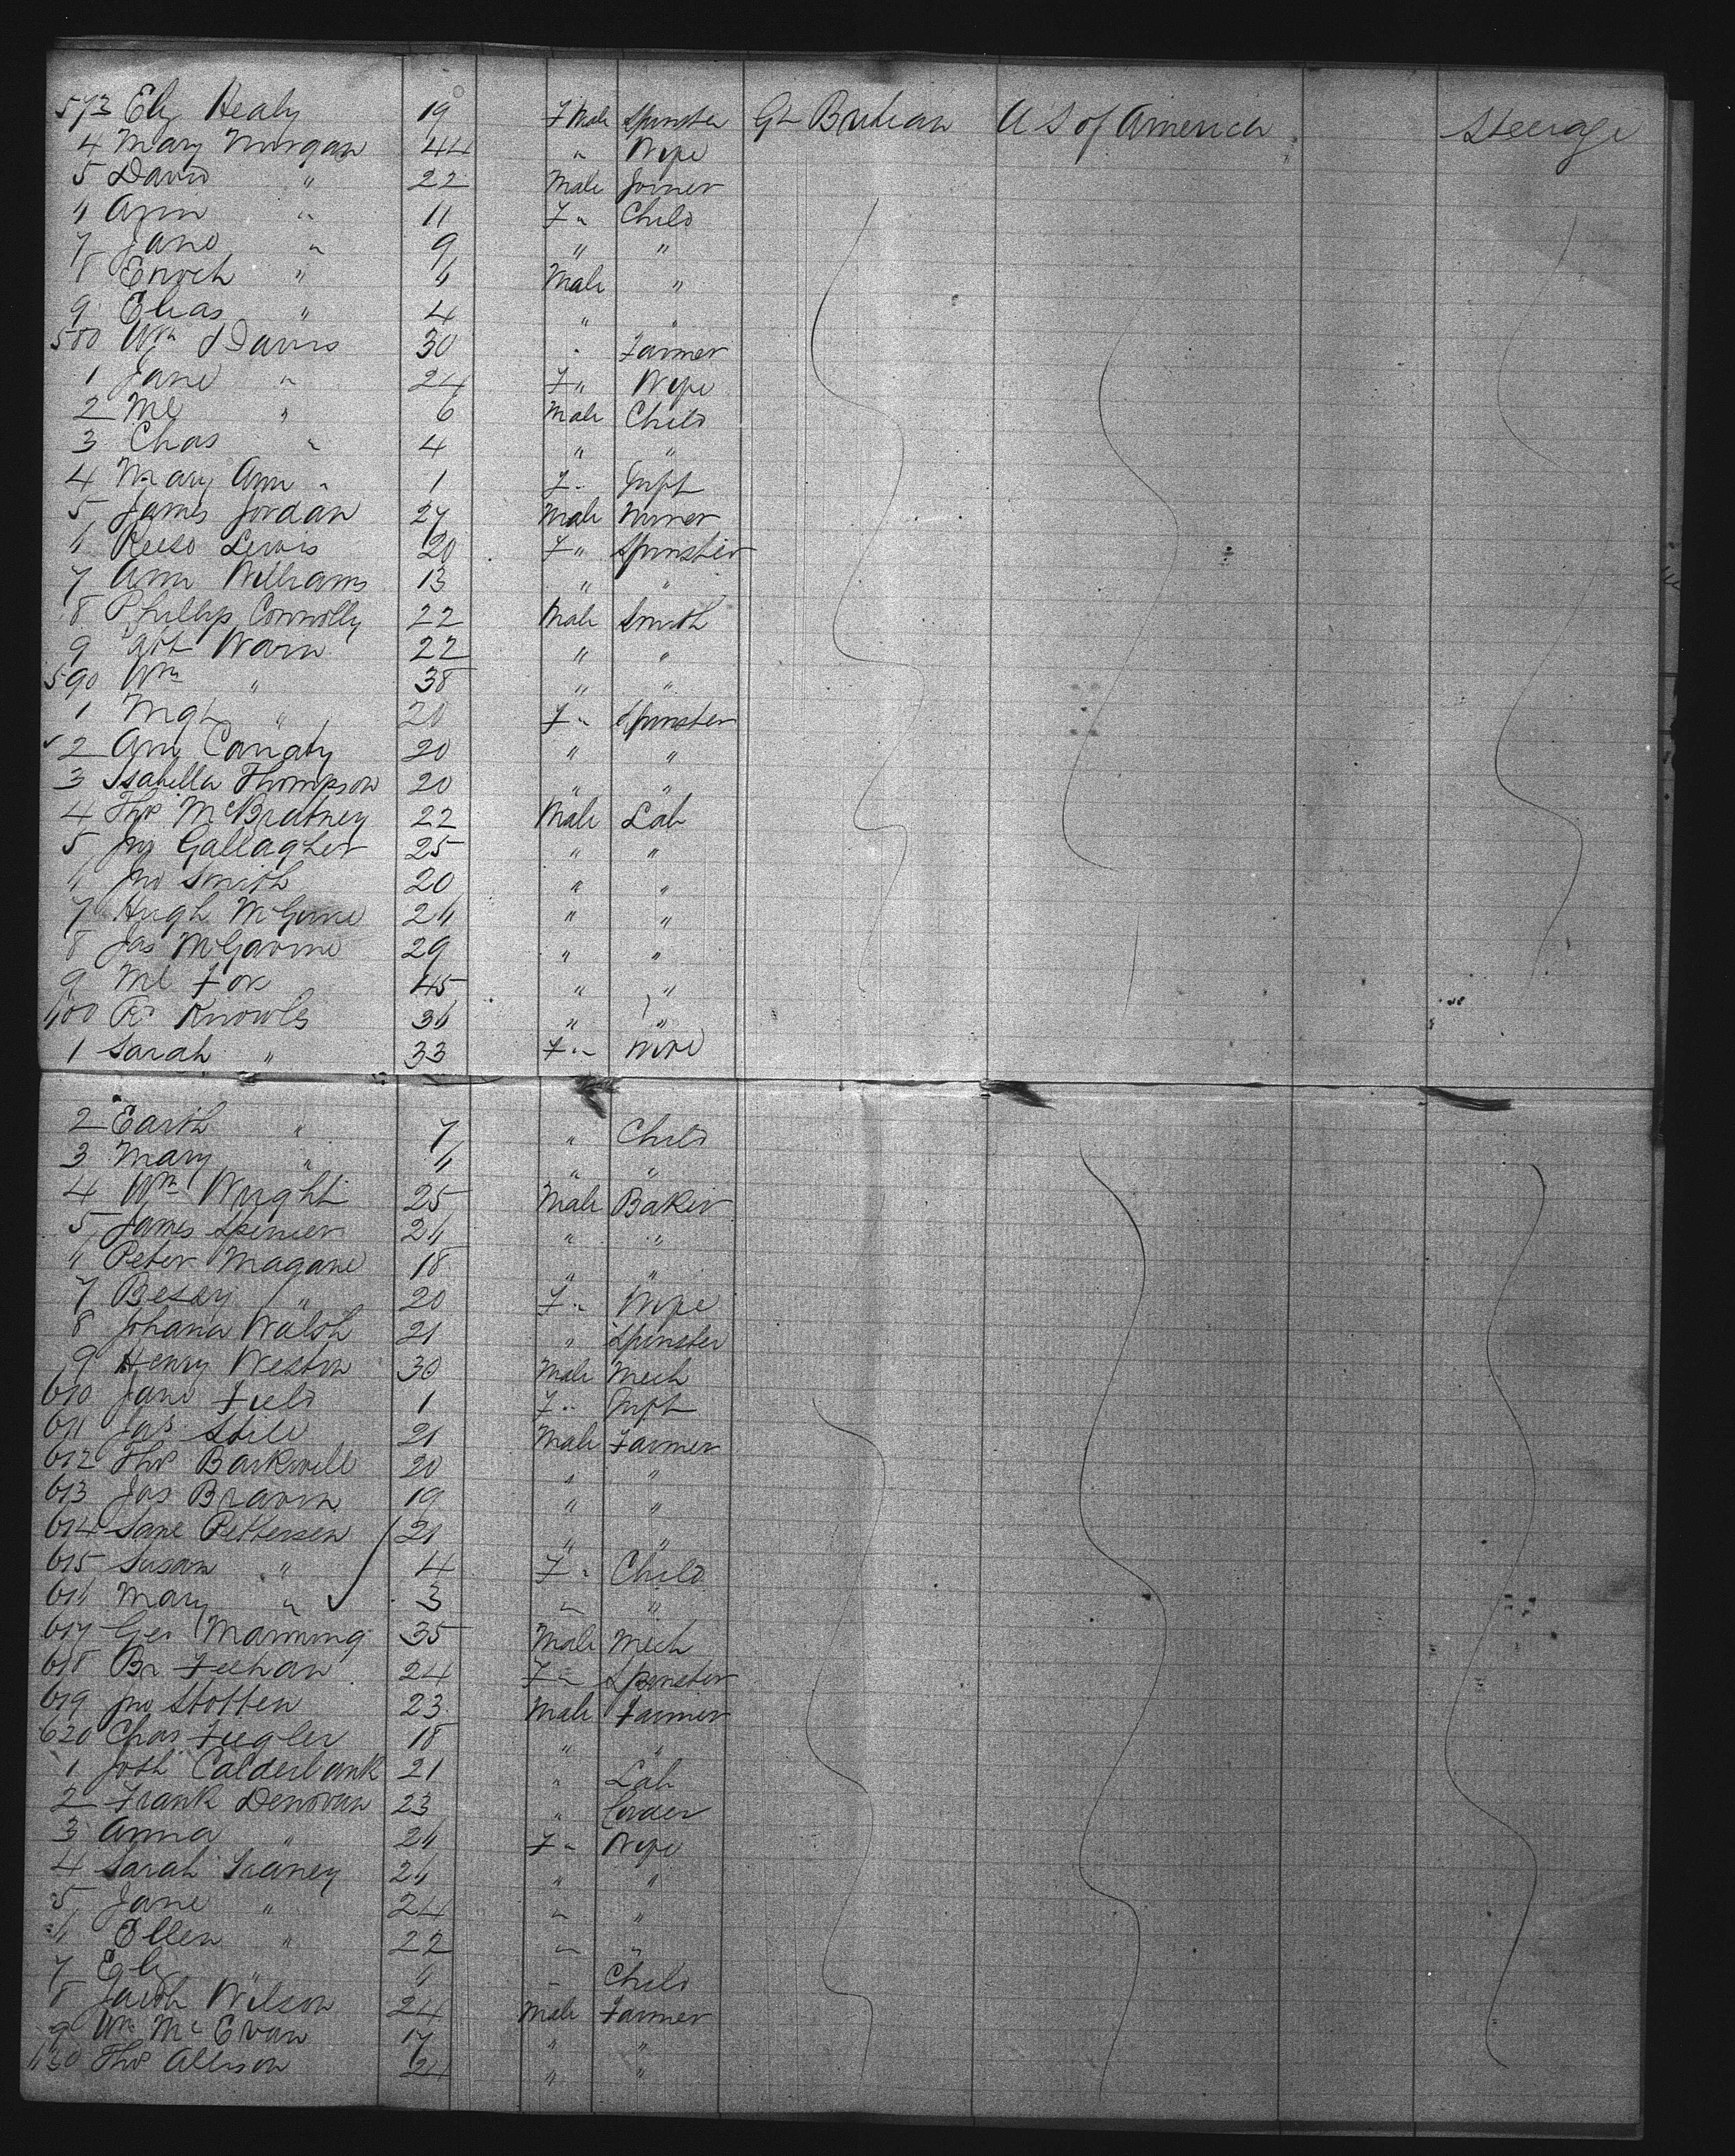 573 Eliz Healy 19 F Male Spinster Gt Britian U S of America Steerage
4 Mary Morgan 44 " Wife
5 David " 22 Male Joiner
6 Ann " 11 F " Child
7 Jane " 9 " "
8 Enoch " 6 Male "
9 Elias " 4 " "
580 Wm Davis 30 " Farmer
1 Jane " 24 F " Wife
2 Ml " 6 Male Child
3 Chas " 4 " "
4 Mary Ann " 1 F " Inft
5 James Jordan 27 Male Miner
6 Reese Lewis 20 F " Spinster
7 Ann Williams 13 " "
8 Phillip Connolly 22 Male Smith
9 Wain 22 " "
590 Wm " 38 " "
1 Mgt " 20 F " Spinster
2 Ann Canaty 20 " "
3 Isabella Thompson 20 " "
4 Thos McBratney 22 Male Lab
5 Jno Gallagher 25 " "
6 Jno Smith 20 " "
7 Hugh 26 " "
8 Jas 29 " "
9 Ml Fox 45 " "
600 Knowles 36 " "
1 Sarah " 33 F " Wife
2 Earth " 7 " Child
3 Mary " 6 " "
4 Wm Wright 25 Male Baker
5 James Spencer 26 " "
6 Peter Magane 18 " "
7 Bessy " 20 F " Wife
8 Johana Walsh 21 " Spinster
9 Henry Weston 30 Male Mech
610 Jane Field 1 F " Inft
611 Jas Stile 21 Male Farmer
612 Thos Barkwell 20 " "
613 Jas Bravin 19 " "
614 Lane Pettersen 21 " "
615 Susan " 4 F " Child
616 Mary " 3 " "
617 Geo Manning 35 Male Mech
618 Br Feehan 24 F " Spinster
619 Jno Stotten 23 Male Farmer
620 Chas Fiegler 18 " "
1 Josh Calderbank 21 " Lab
2 Frank Denovan 23 " Carder
3 Anna " 26 F " Wife
4 Sarah 26 " "
5 Jane " 24 " "
6 Ellen " 22 " "
7 Eliz " 6 " Child
8 Jacob Wilson 24 Male Farmer
9 Wm McEvan 17 " "
630 Thos Allison 24 " "